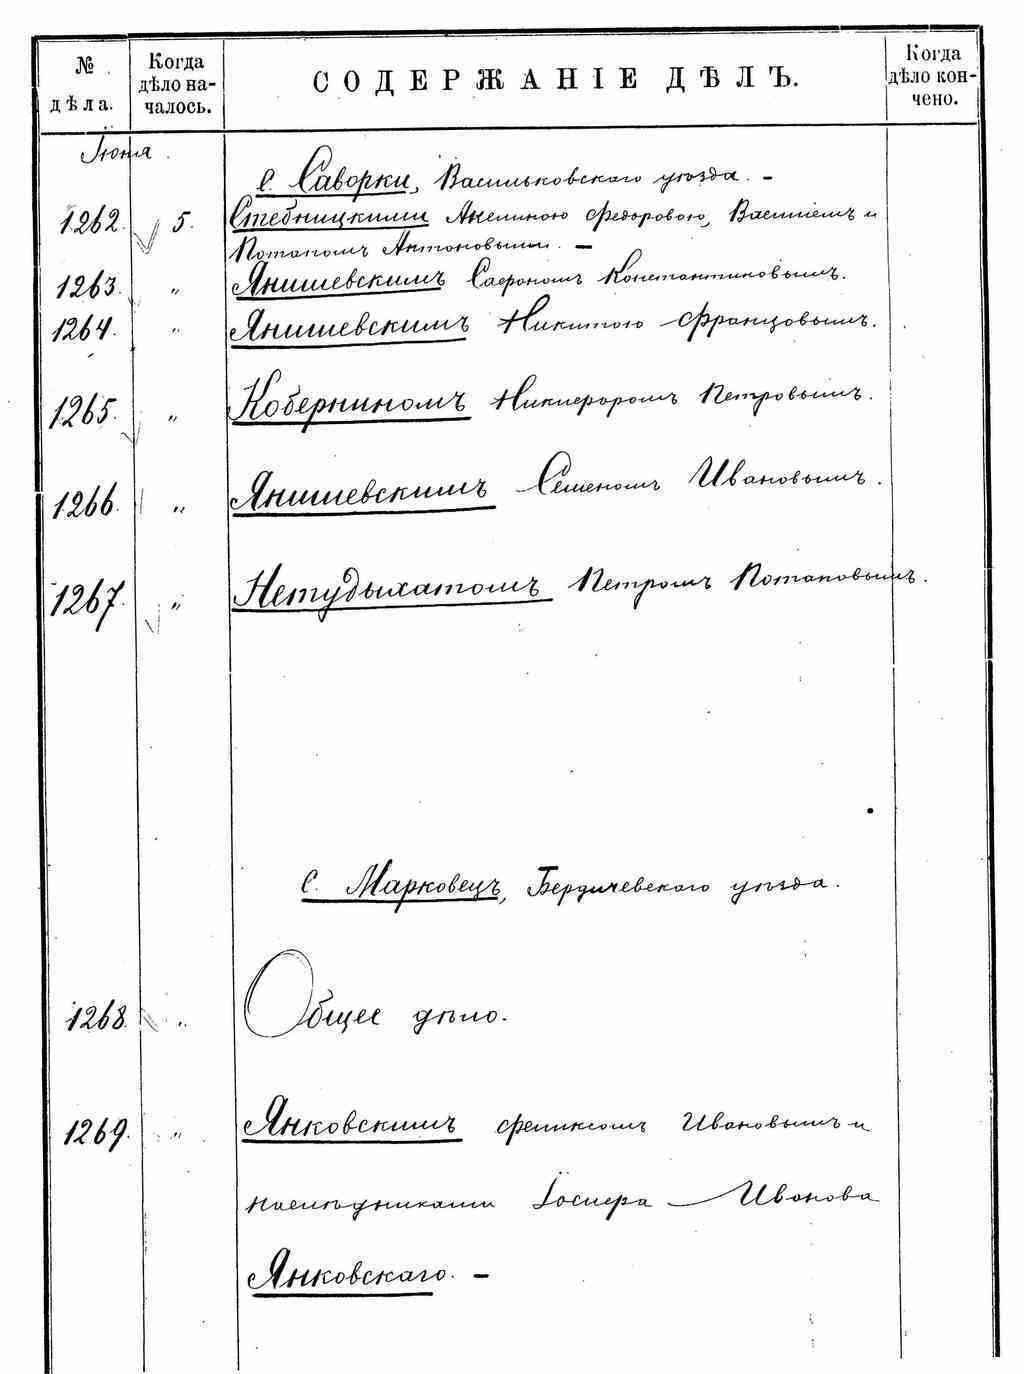 № дѣла.
Когда дѣло на-
чалось.
СОДЕРЖАНІЕ ДѢЛЪ.
Когда дѣло кон-
чено.
Іюня
С. Саворки, Васильковскаго уѣзда. –
1262. 5. Стебницкими Акелиною Федоровою, Василіемъ и
Потапомъ Антоновыми. –
1263. " Янишевскимъ Сафрономъ Константиновымъ.
1264. " Янишевскимъ Никитою Францовымъ.
1265. " Коберниномъ Никифоромъ Петровымъ.
1266. " Янишевскимъ Семеномъ Ивановымъ.
1267. " Нетудыхатомъ Петромъ Потаповымъ.
С. Марковецъ, Бердичевскаго уѣзда.
1268. " Общее дѣло.
1269. " Янковскимъ Феликсомъ Ивановымъ и
наслѣдниками Іосифа Иванова
Янковскаго. –